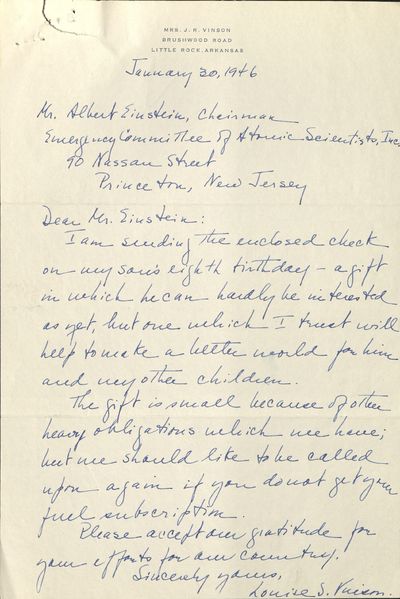 MRS. J. R. VINSON
BRUSHWOOD ROAD
LITTLE ROCK, ARKANSAS
January 30, 1946
Mr. Albert Einstein, Chairman
Emergency Committee of Atomic Scientists, Inc.
90 Nassau Street
Princeton, New Jersey
Dear Mr. Einstein:
I am sending the enclosed check
on my son's eighth birthday - a gift
in which he can hardly be interested
as yet, but one which I trust will
help to make a better world for him
and my other children.
The gift is small because of other
heavy obligations which we have;
but we should like to be called
upon again if you do not get your
full subscription.
Please accept our gratitude for
your efforts for our country.
Sincerely yours,
Louise S. Vinson.